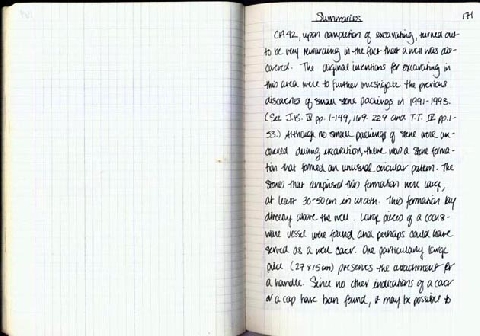 171
Summaries
OP 42, upon completion of excavating, turned out
to be very rewarding in the fact that a well was dis-
covered. The original intentions for excavating in
this area were to further investigate the previous
discoveries of small stone packings in 1991-1993.
(See J.B. II pp. 1-149, 169-224 and T.T. II pp. 1-
53.) Although no small packings of stone were un-
covered during excavation, there was a stone forma-
tion that formed an unusual circular pattern. The
stones that comprised this formation were large,
at least 30-50 cm in width. This formation lay
directly above the well. Large pieces of a coarse-
ware vessel were found, and perhaps could have
served as a well cover. One particularly large
piece (27 x 15 cm) preserves the attachment for
a handle. Since no other indications of a cover
or a cap have been found, it may be possible to